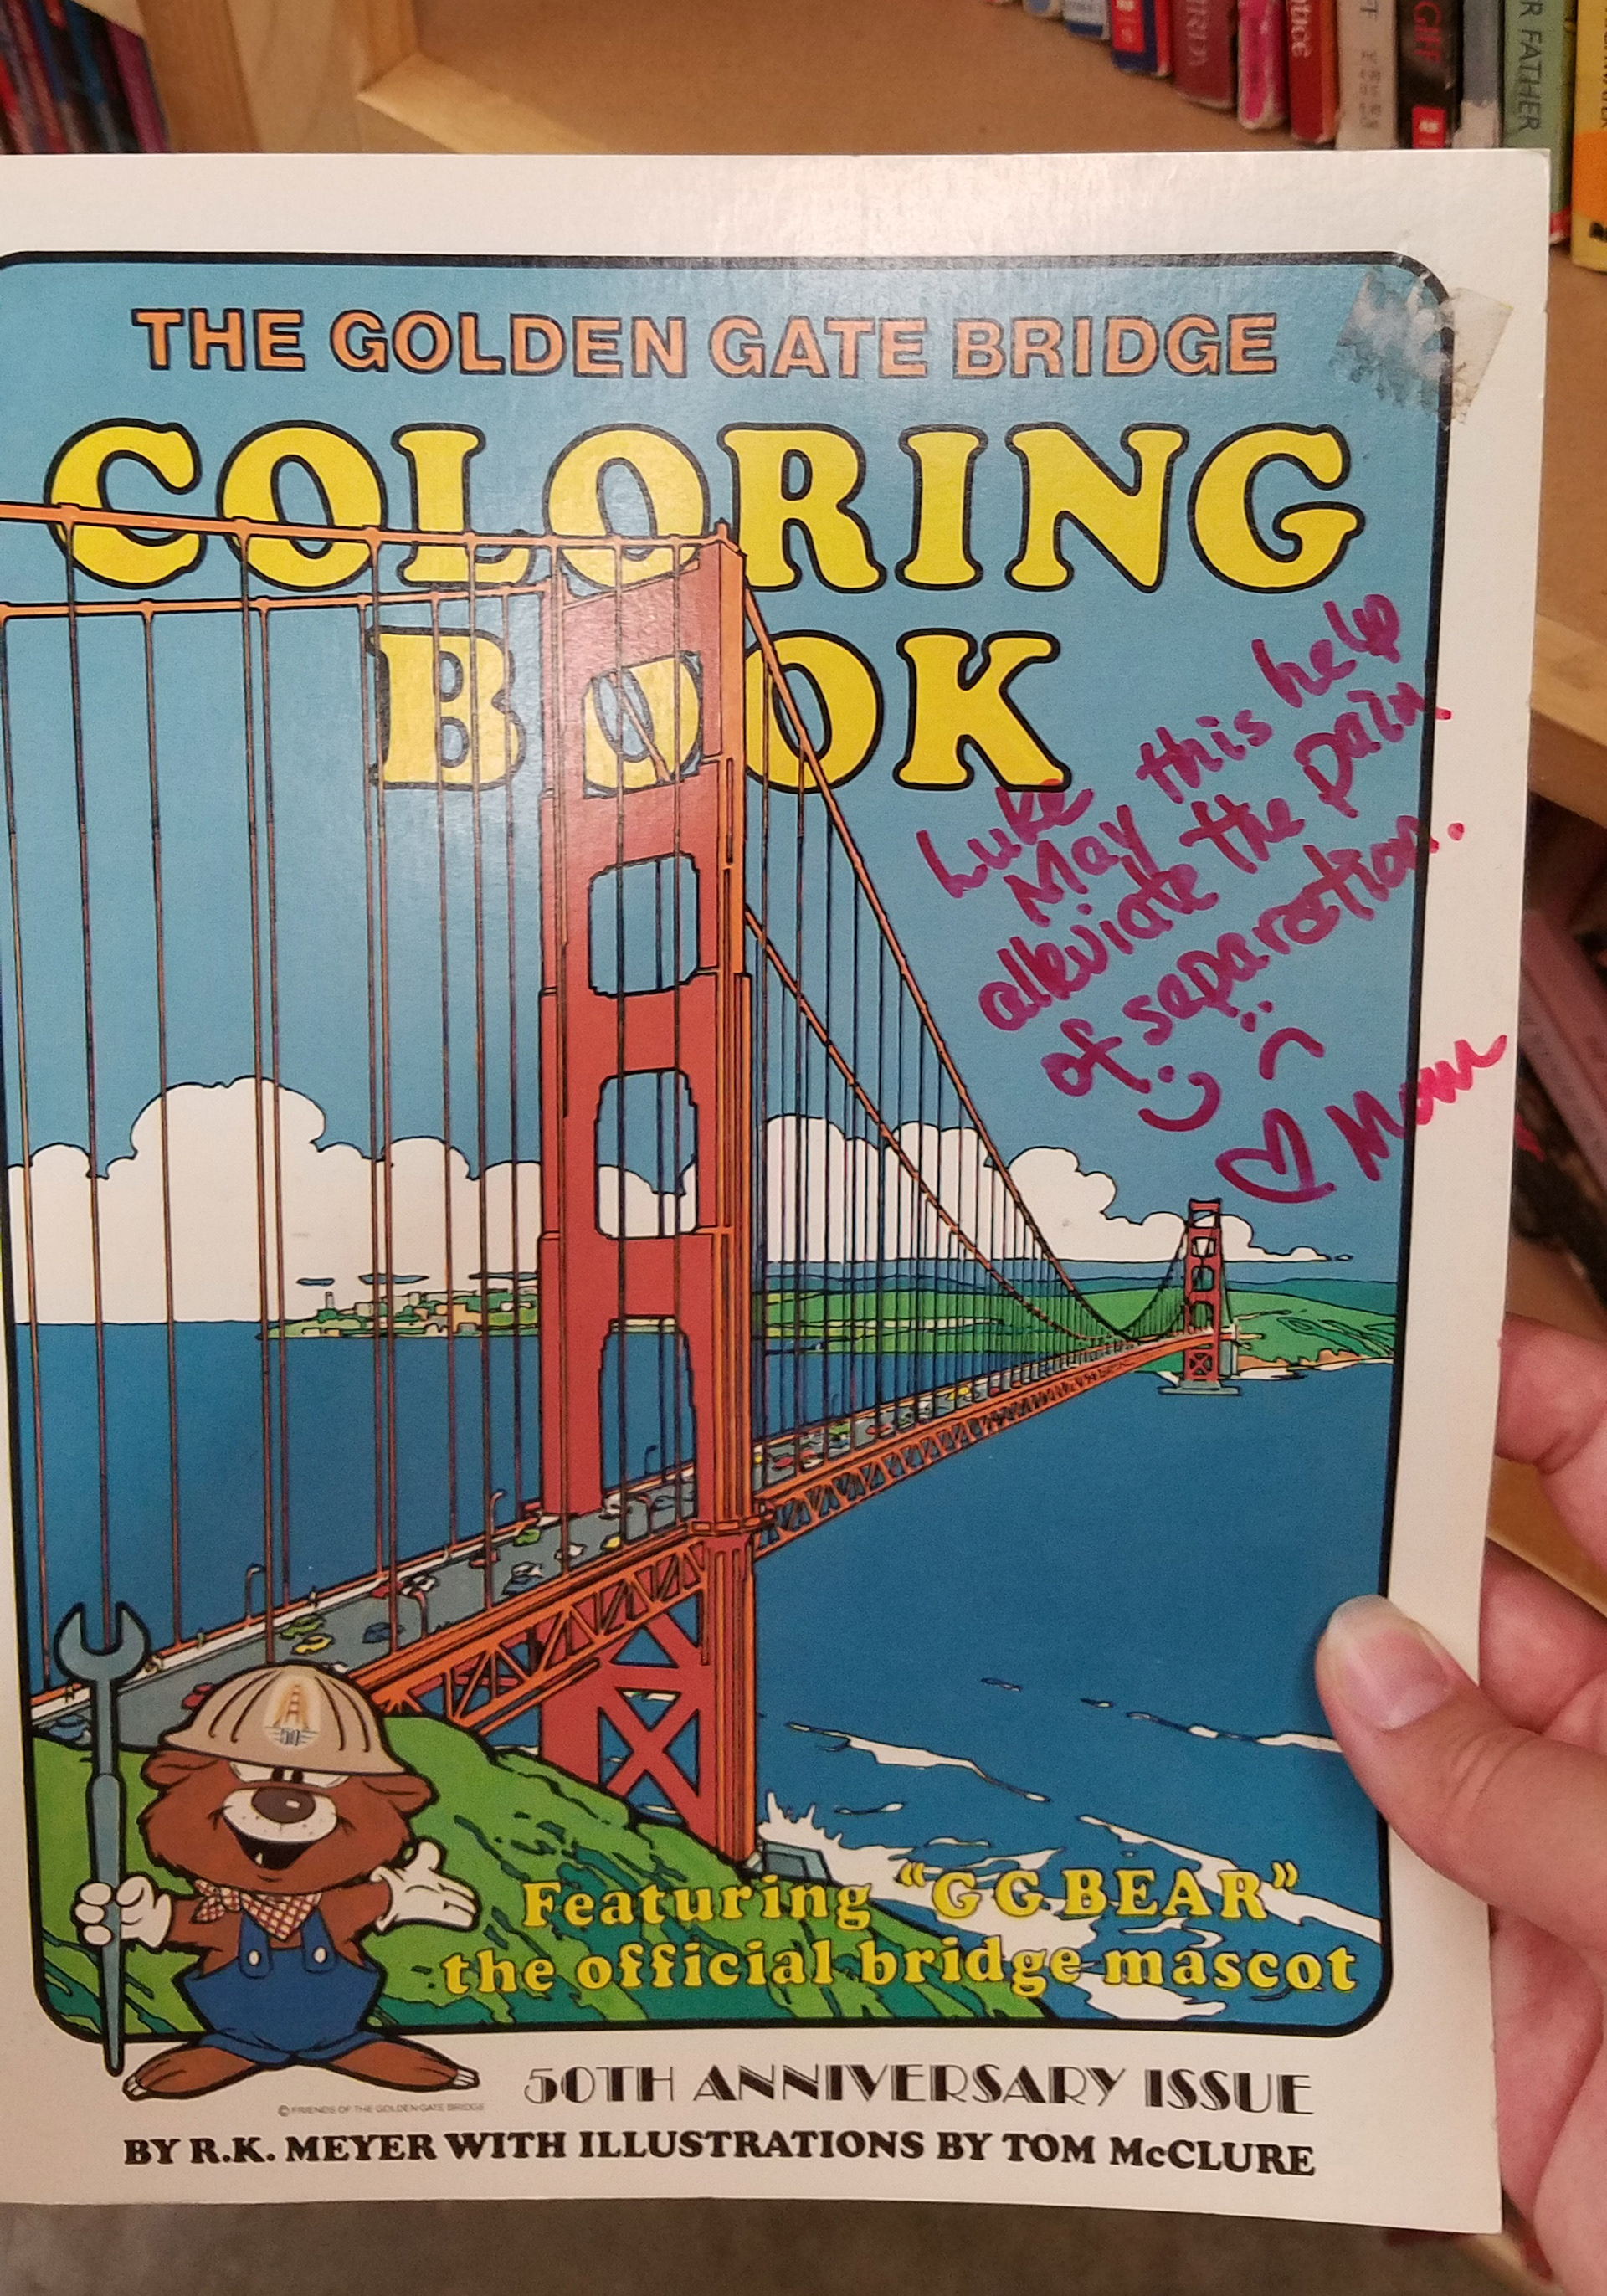 THE GOLDEN GATE BRIDGE
COLORING
BOOK
Luke
May this help
alleviate the pain
of separation.
♡ Mom
Featuring "GG BEAR"
the official bridge mascot
50TH ANNIVERSARY ISSUE
© FRIENDS OF THE GOLDEN GATE BRIDGE
BY R.K. MEYER WITH ILLUSTRATIONS BY TOM McCLURE
R FATHER
GIFT